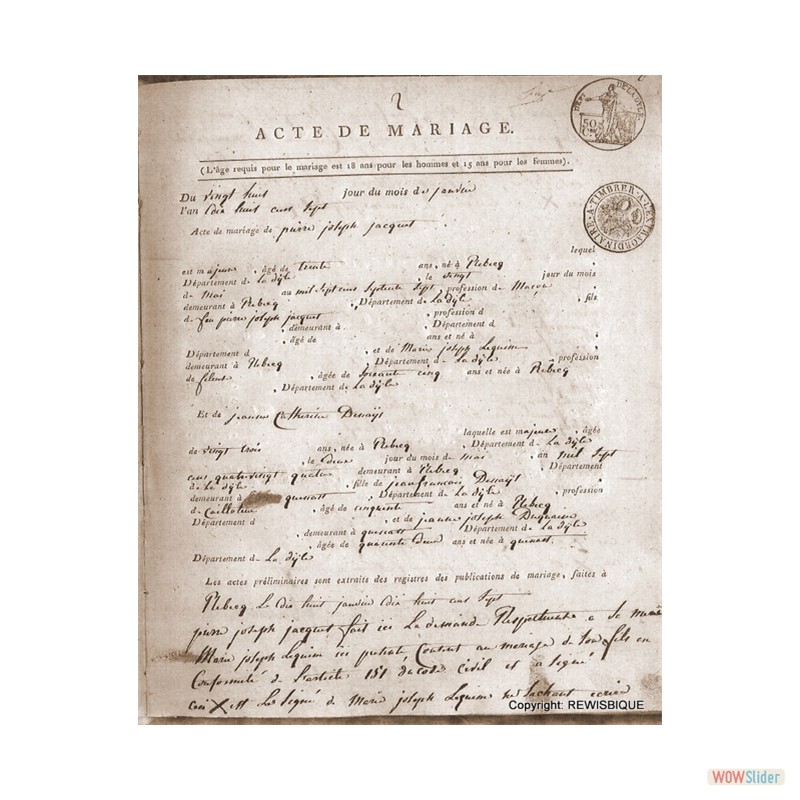 2
DEPT DE LA DYLE.
50 C.
ACTE DE MARIAGE.
(L'âge requis pour le mariage est 18 ans pour les hommes et 15 ans pour les femmes).
A TIMBRER A L'EXTRAORDINAIRE
Du vingt huit jour du mois de janvier
l'an dix huit cens sept
Acte de mariage de pierre joseph jacquet
lequel
est majeur, âgé de trente ans, né à Rebecq
Département de La dyle, le vingt jour du mois
de Mai au mil sept cens septente sept, profession de Maçon
demeurant à Rebecq, Département de La dyle, fils
de feu pierre joseph jacquet, profession d
, demeurant à , Département d
, âgé de ans et né à
Département d , et de Marie joseph Lequime
demeurant à Rebecq, Département de La dyle, profession
de fileuse, âgée de soixante cinq ans et née à Rebecq
, Département de La dyle
Et de jeanne Catherine
laquelle est majeure, âgée
de vingt trois ans, née à Rebecq, Département de La dyle
, le deux jour du mois de mai an mil sept
cens quatre vingt quatre demeurant à Rebecq Département
de La dyle, fils de jean francois
demeurant à quenast, Département de La dyle, profession
de, âgé de cinquante ans et né à Rebecq
Département d , et de jeanne joseph
, demeurant à quenast Département de La dyle
, âgée de quarante deux ans et née à quenast.
Département de La dyle
Les actes préliminaires sont extraits des registres des publications de mariage, faites à
Rebecq Le dix huit janvier dix huit cens sept
pierre joseph jacquet fait ici La demande Respectueuse a Sa mère
Marie joseph Lequime ici présente Consent au mariage de son fils en
Conformité de L'article 151 du code civil et a signé
Ceci X est Le Signé de Marie joseph Lequime ne Sachant écrire
Copyright: REWISBIQUE
WOWSlider